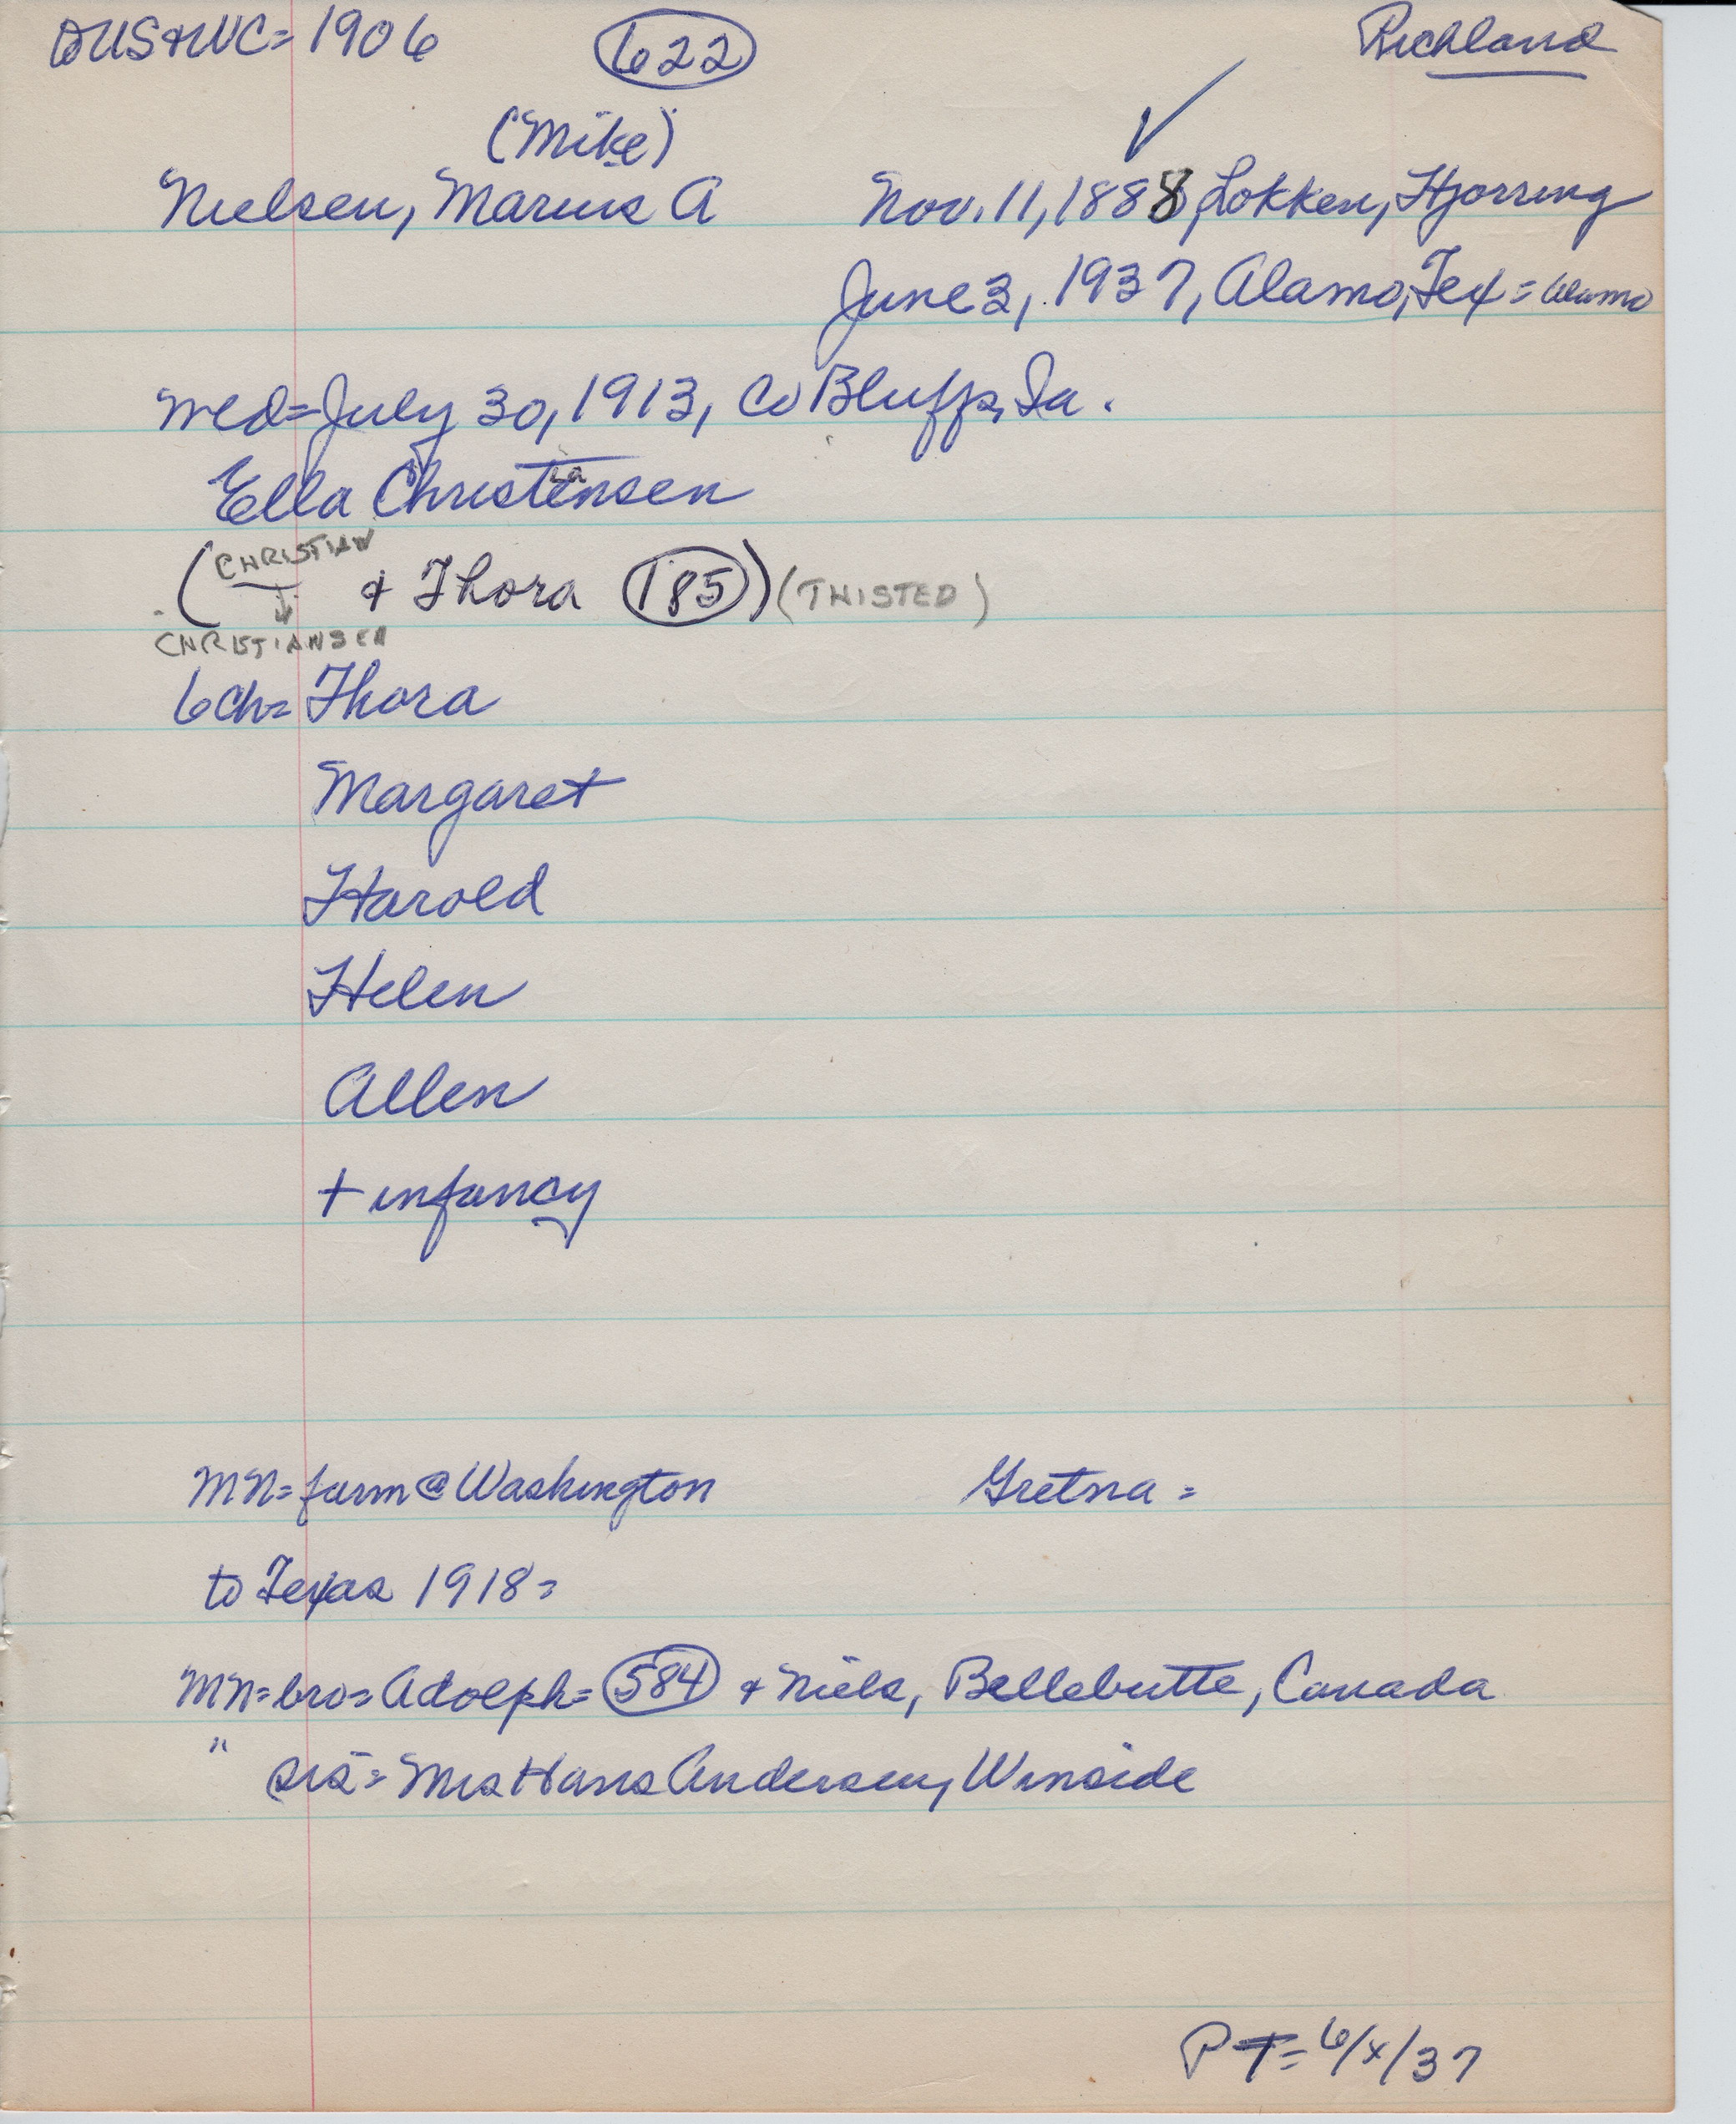 2US&WC= 1906 622 Richland
(Mike)
Nielsen, Marius A Nov. 11, 1888, Lokken, Hjorring
June 3, 1937, Alamo, Tex = Alamo
Wed= July 30, 1913, Co Bluffs, Ia.
ia
Ella Christensen
(CHRISTIAN & Thora 185) (TWISTED)
CHRISTIANSEN
6 ch= Thora
Margaret
Harold
Helen
Allen
+ infancy
MN= farm @ Washington Gretna =
to Texas 1918=
MN= bro= Adolph= 584 & Niels, Bellebutte, Canada
" sis= Mrs Hans Andersen, Winside
PT= 6/x/37